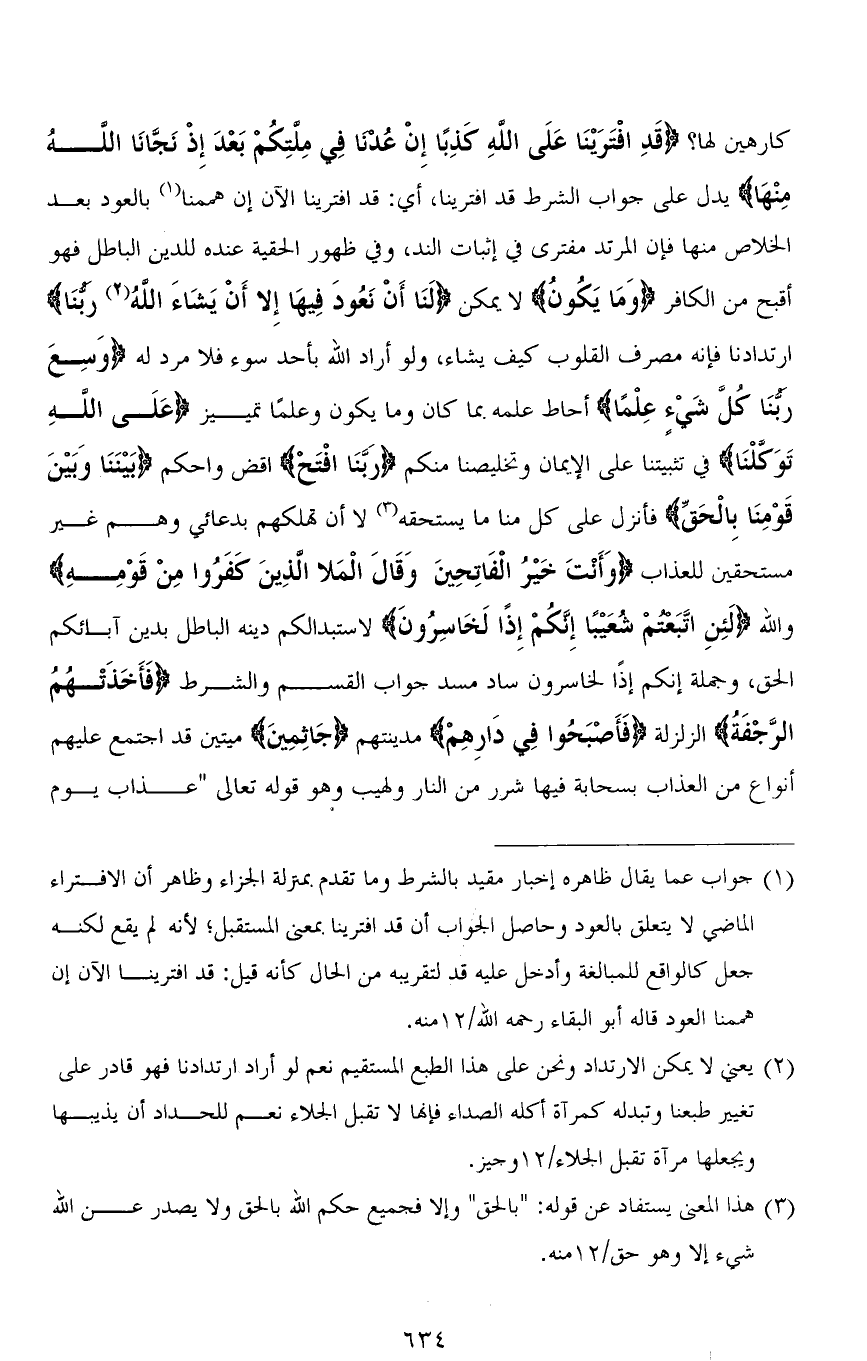 كارهين لها؟ ﴿قَدِ افْتَرَيْنَا عَلَى اللَّهِ كَذِبًا إِنْ عُدْنَا فِي مِلَّتِكُمْ بَعْدَ إِذْ نَجَّانَا اللَّهُ
مِنْهَا﴾ يدل على جواب الشرط قد افترينا، أي: قد افترينا الآن إن هممنا(١) بالعود بعد
الخلاص منها فإن المرتد مفترى في إثبات الند، وفي ظهور الحقية عنده للدين الباطل فهو
أقبح من الكافر ﴿وَمَا يَكُونُ﴾ لا يمكن ﴿لَنَا أَنْ نَعُودَ فِيهَا إِلا أَنْ يَشَاءَ اللَّهُ(٢) رَبُّنَا﴾
ارتدادنا فإنه مصرف القلوب كيف يشاء، ولو أراد الله بأحد سوء فلا مرد له ﴿وَسِعَ
رَبُّنَا كُلَّ شَيْءٍ عِلْمًا﴾ أحاط علمه بما كان وما يكون وعلمًا تمييز ﴿عَلَى اللَّهِ
تَوَكَّلْنَا﴾ في تثبيتنا على الإيمان وتخليصنا منكم ﴿رَبَّنَا افْتَحْ﴾ اقض واحكم ﴿بَيْنَنَا وَبَيْنَ
قَوْمِنَا بِالْحَقِّ﴾ فأنزل على كل منا ما يستحقه(٣) لا أن تهلكهم بدعائي وهم غير
مستحقين للعذاب ﴿وَأَنْتَ خَيْرُ الْفَاتِحِينَ وَقَالَ الْمَلا الَّذِينَ كَفَرُوا مِنْ قَوْمِهِ﴾
والله ﴿لَئِنِ اتَّبَعْتُمْ شُعَيْبًا إِنَّكُمْ إِذًا لَخَاسِرُونَ﴾ لاستبدالكم دينه الباطل بدين آبائكم
الحق، وجملة إنكم إذًا لخاسرون ساد مسد جواب القسم والشرط ﴿فَأَخَذَتْهُمُ
الرَّجْفَةُ﴾ الزلزلة ﴿فَأَصْبَحُوا فِي دَارِهِمْ﴾ مدينتهم ﴿جَاثِمِينَ﴾ ميتين قد اجتمع عليهم
أنواع من العذاب بسحابة فيها شرر من النار ولهيب وهو قوله تعالى "عذاب يوم
(١) جواب عما يقال ظاهره إخبار مقيد بالشرط وما تقدم بمنزلة الجزاء وظاهر أن الافتراء
الماضي لا يتعلق بالعود وحاصل الجواب أن قد افترينا بمعنى المستقبل؛ لأنه لم يقع لكنه
جعل كالواقع للمبالغة وأدخل عليه قد لتقريبه من الحال كأنه قيل: قد افترينا الآن إن
هممنا العود قاله أبو البقاء رحمه الله/١٢منه.
(٢) يعني لا يمكن الارتداد ونحن على هذا الطبع المستقيم نعم لو أراد ارتدادنا فهو قادر على
تغيير طبعنا وتبدله كمرآة أكله الصداء فإنها لا تقبل الجلاء نعم للحداد أن يذيبها
ويجعلها مرآة تقبل الجلاء/١٢وجيز.
(٣) هذا المعنى يستفاد عن قوله: "بالحق" وإلا فجميع حكم الله بالحق ولا يصدر عن الله
شيء إلا وهو حق/١٢منه.
٦٣٤